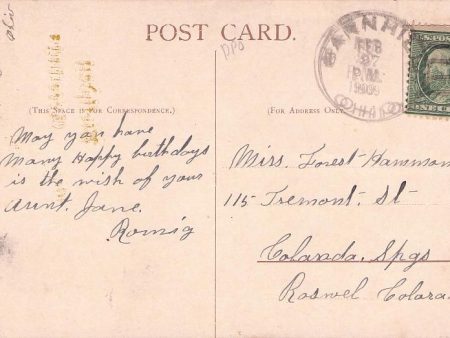 Ohio
POST CARD.
DPO
BARNHILL
FEB
27
P.M.
1909
OHIO
(THIS SPACE IS FOR CORRESPONDENCE.)
(FOR ADDRESS ONLY.
May you have
Many Happy birthdays
is the wish of your
aunt. Jane.
Romig
Miss. Forest Hammon
115 Tremont. St
Colorada. Spgs
Roswel Colora